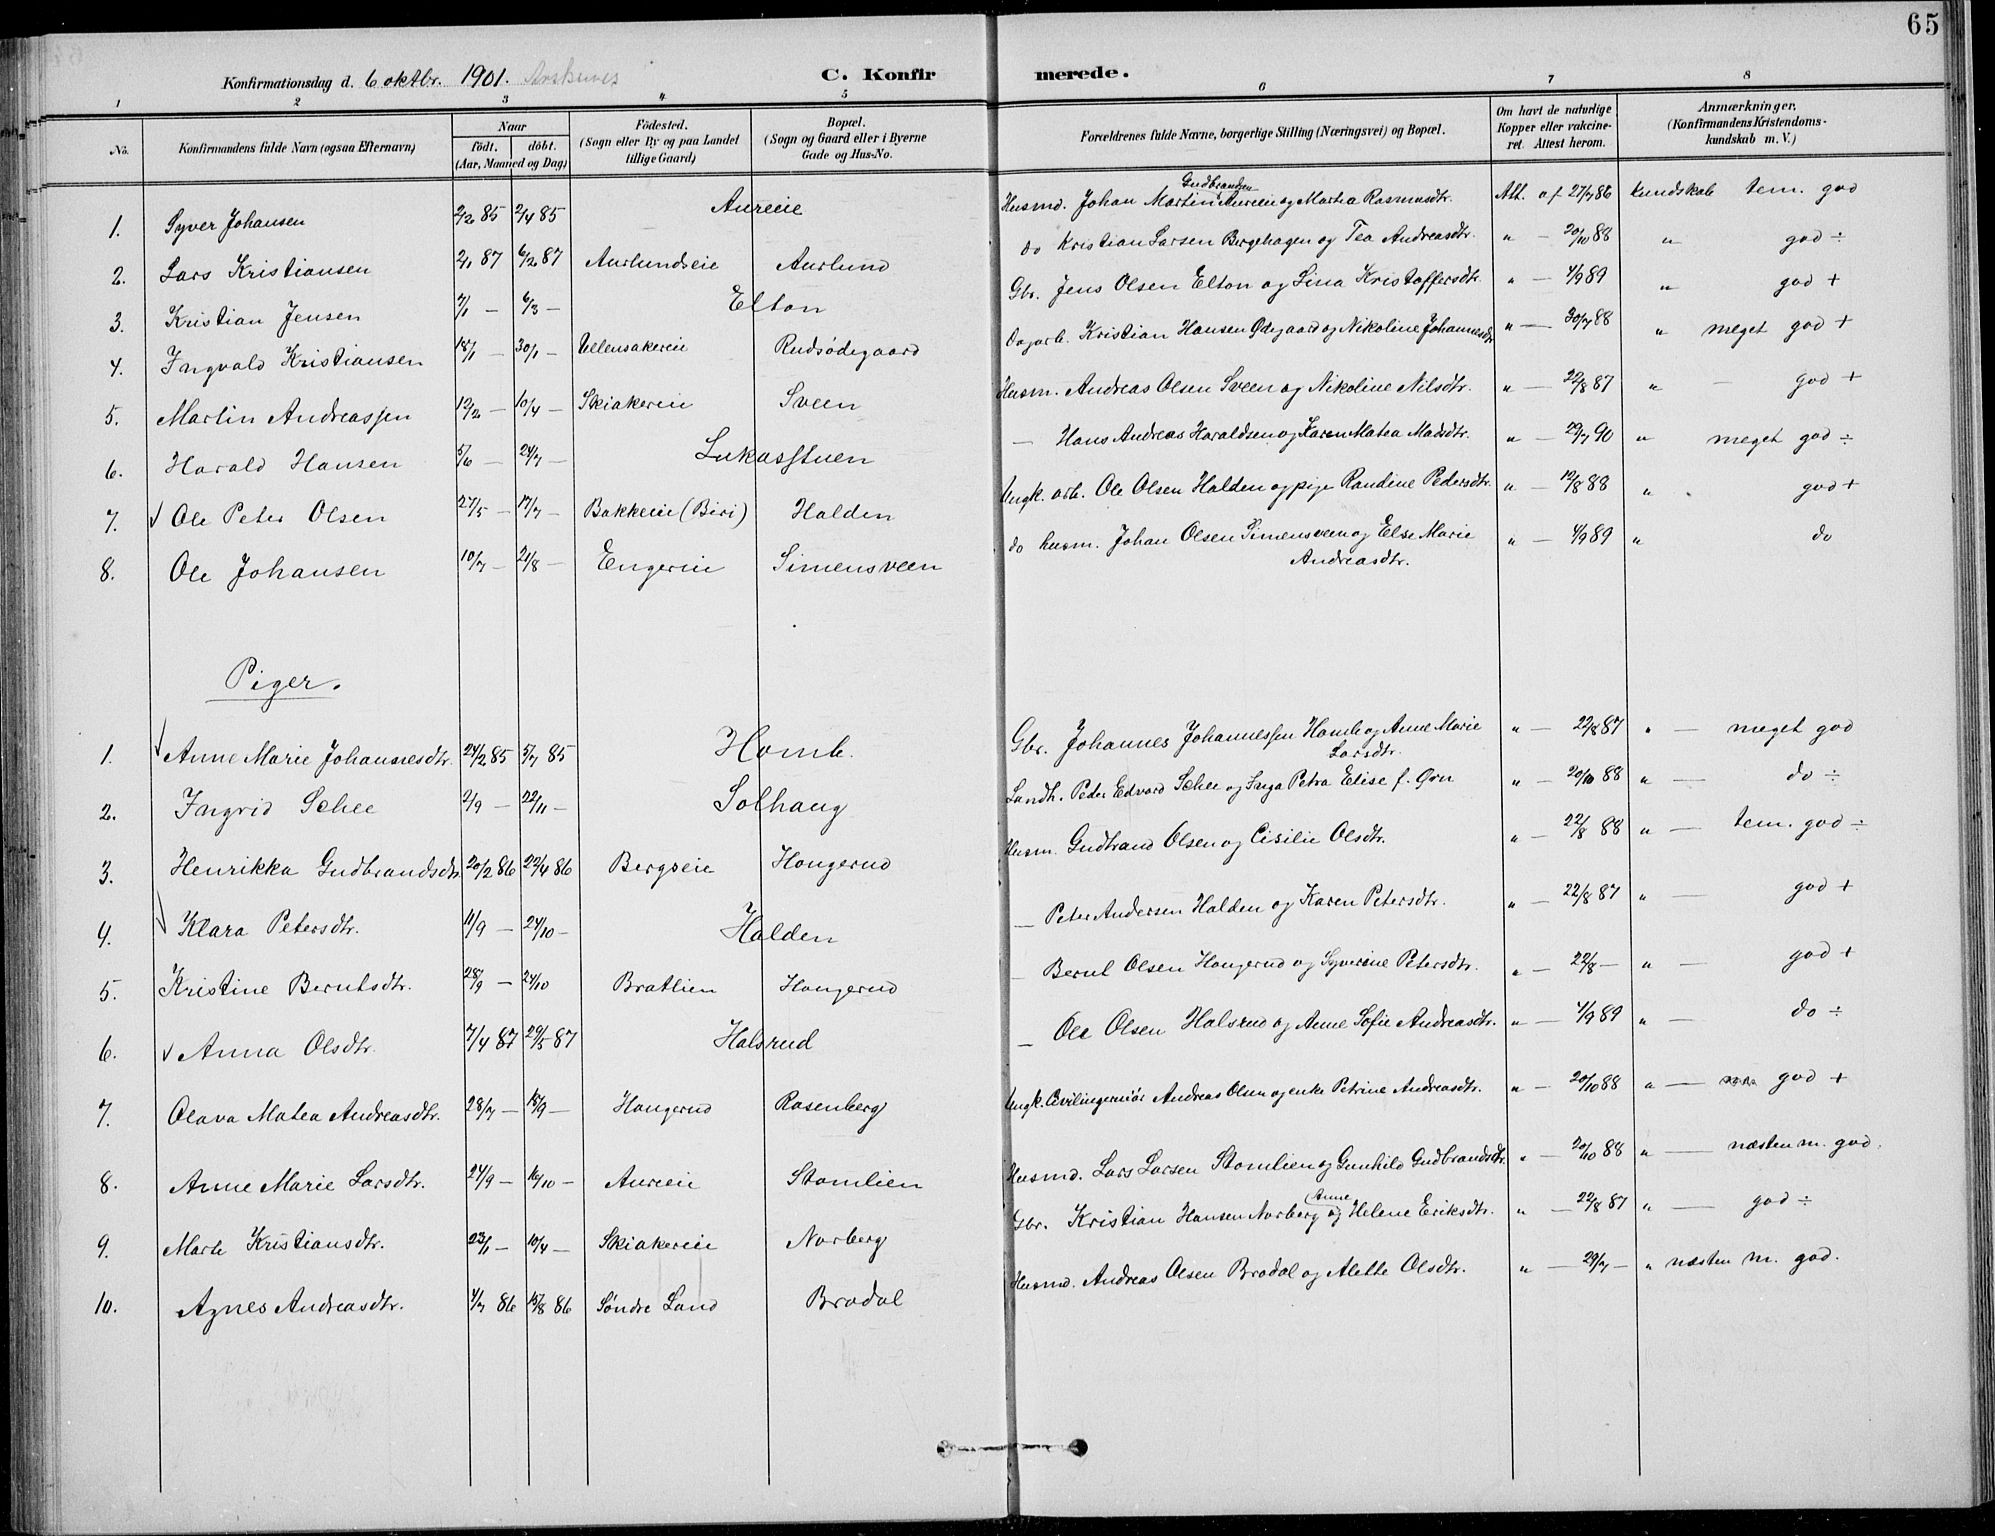 65
Konfirmationsdag d. 6 oktbr. 1901. C. Konfirmerede.
1 2 3 4 5 6 7 8
No. Konfirmandens fulde Navn (ogsaa Efternavn) Naar født. døbt. (Aar, Maaned og Dag) Födested. (Sogn eller By og paa Landet tillige Gaard) Bopæl. (Sogn og Gaard eller i Byerne Gade og Hus-No. Forældrenes fulde Navne, borgerlige Stilling (Næringsvei) og Bopæl. Om havt de naturlige Kopper eller vakcineret. Attest herom. Anmærkninger. (Konfirmandens Kristendomskundskab m. V.)
1. Syver Johansen 2/2 85 2/4 85 Aureie Husmd. Johan Martin Gudbrandsen Aureie og Martea Rasmusdtr. Att. af 27/7 86 kundskab tem. god
2. Lars Kristiansen 2/1 87 6/2 87 Aurlundseie Aurlund do Kristian Larsen Bergehagen og Tea Andreasdtr. " — 20/10 88 " god ÷
3. Kristian Jensen 7/1 — 6/3 — Elton Gbr. Jens Olsen Elton og Lina Kristoffersdtr. " — 4/9 89 " god +
4. Ingvald Kristiansen 18/1 — 30/1 — Ullensakereie Rudsødegaard Dagarb. Kristian Hansen Ødegaard og Nikoline Johannesdtr " — 30/7 88 " meget god +
5. Martin Andreassen 12/2 — 10/4 — Skiakereie Sveen Husm. Andreas Olsen Sveen og Nikoline Nilsdtr. " — 22/8 87 " — god +
6. Harald Hansen 5/6 — 24/7 — Lukasstuen — Hans Andreas Haraldsen og Karen Matea Madsdtr. " — 29/7 90 " meget god ÷
7. √ Ole Peter Olsen 27/5 — 17/7 — Bakkeeie (Biri) Halden Ungk. arb. Ole Olsen Halden og pige Randine Pedersdtr. " — 12/8 88 " god +
8. Ole Johansen 10/7 — 21/8 — Engereie Simensveen do husm. Johan Olsen Simensveen og Else Marie Andreasdtr. " — 4/9 89 " do
Piger.
1. √ Anne Marie Johannesdtr. 24/2 85 5/7 85 Homb. Gbr. Johannes Johannessen Homb og Anne Marie Larsdtr. " — 22/8 87 " — meget god
2. Ingrid Schee 2/9 — 22/11 — Solhaug Landh. Peder Edvard Schee og Inga Petra Elise f. Ørn " — 20/10 88 " — do ÷
3. Henrikka Gudbrandsdtr. 20/2 86 22/4 86 Bergseie Hongerud Husm. Gudbrand Olsen og Cisilie Olsdtr. " — 22/8 88 " — tem. god ÷
4. √ Klara Petersdtr. 11/9 — 24/10 — Halden — Peter Andersen Halden og Karen Petersdtr. " — 22/8 87 " — god +
5. Kristine Berntsdtr. 28/9 — 24/10 Bratlien Hongerud — Bernt Olsen Hongerud og Syverine Petersdtr. " — 22/8 — " — god +
6. √ Anna Olsdtr. 7/4 87 29/5 87 Halsrud — Ole Olsen Halsrud og Anne Sofie Andreasdtr. " — 4/9 89 " — do ÷
7. Olava Matea Andreasdtr. 28/7 — 18/9 — Hongerud Rosenberg Ungk. Civilingeniør Andreas Olsen og enke Petrine Andreasdtr. " — 20/10 88 " — god +
8. Anne Marie Larsdtr. 24/9 — 16/10 — Aureie Stomlien Husmd. Lars Larsen Stomlien og Gunhild Gudbrandsdtr. " — 20/10 88 " — næsten m. god.
9. Marte Kristiansdtr. 23/1 — 10/4 — Skiakereie Norberg Gbr. Kristian Hansen Norberg og (Anne Helene Eriksdtr. " — 22/8 87 " — god ÷
10. Agnes Andreasdtr. 4/7 86 15/8 86 Søndre Land Brodal Husmd. Andreas Olsen Brodal og Alette Olsdtr. " — 29/7 — " næsten m. god.